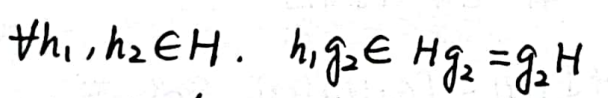 ∀h₁,h₂∈H. h₁g₂∈ Hg₂=g₂H